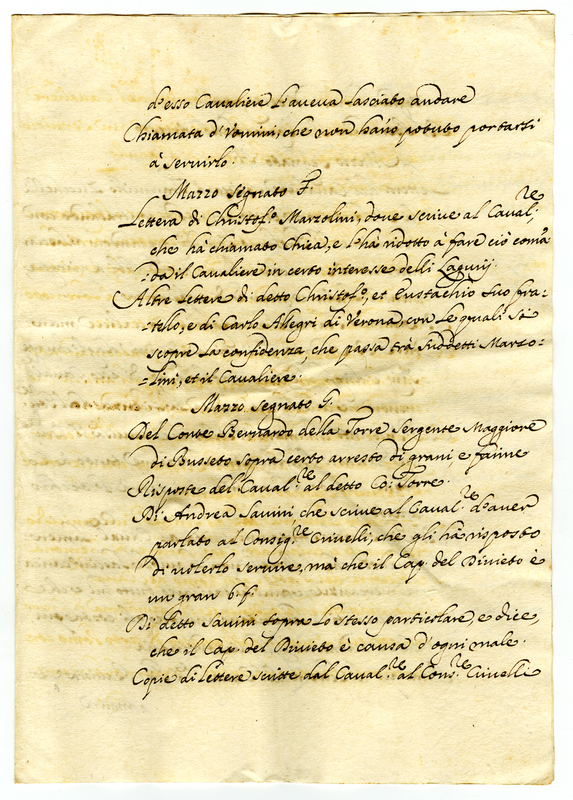 d'esso Cavaliere l'aveva lasciato andare
Chiamata d'Vomini, che non hanno potuto portarsi
à servirlo.
Mazzo segnato F.
Lettera di Christof.o Marzolini, dove scrive al Caval.re
che hà chiamato Chiea, e l'hà ridotto à fare ciò com'a
da il Cavaliere in certo interesse delli
Altre Lettere di detto Christof.o, et Eustachio suo fra-
-tello, e di Carlo Alegri di Verona, con le quali si
scopre la confidenza, che passa trà suddetti Marzo-
-lini, et il Cavaliere.
Mazzo segnato G.
Del Conte Bernardo della Torre Sergente Maggiore
di Busseto sopra certo arresto di grani, e farine
Risposte del Caval.re al detto Co: Torre.
Di Andrea Savini che scrive al Caval.re d'aver
parlato al Consig.re Crivelli, che gli hà risposto
di volerlo servire, mà che il Cap. del Divieto è
un gran b. f.
Di detto Savini sopra lo stesso particolare, e dice,
che il Cap. del Divieto è causa d'ogni male.
Copie di Lettere scritte dal Caval.re al Cons.re Crivelli